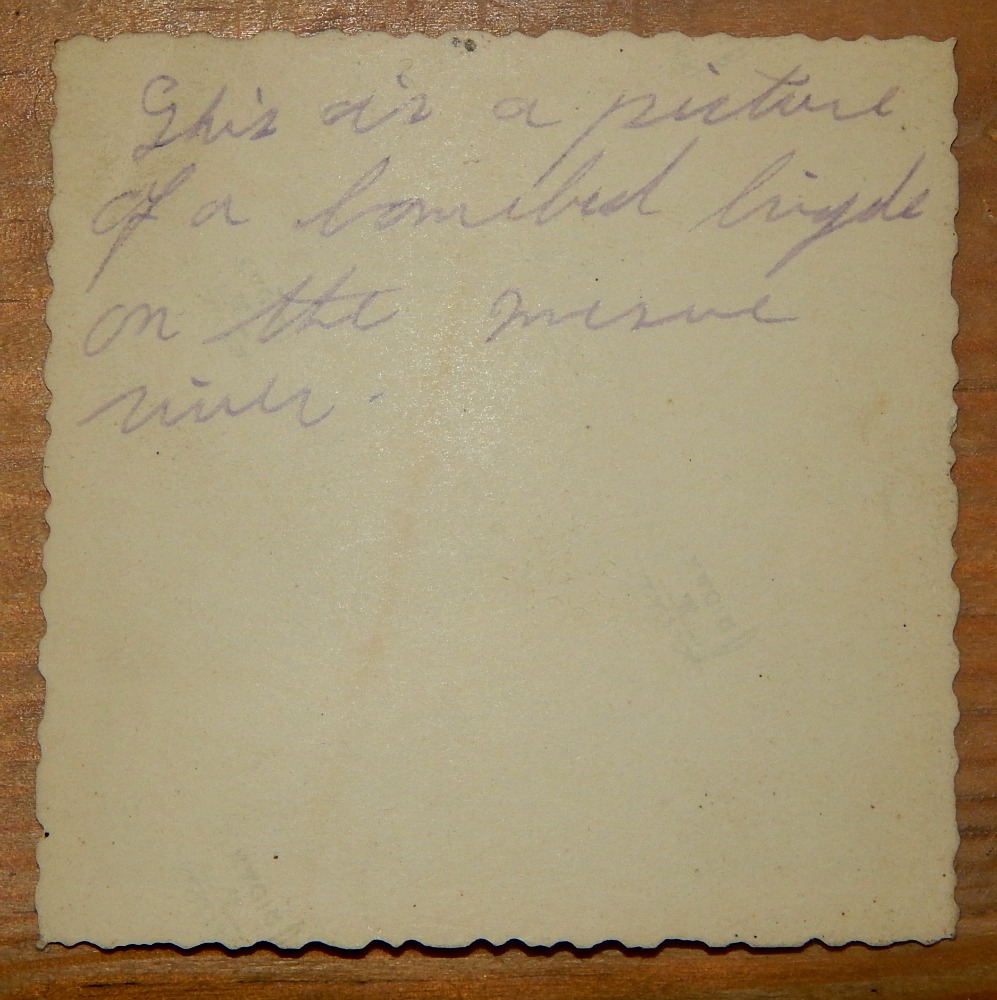 This is a picture
of a bombed brigde
on the
river.